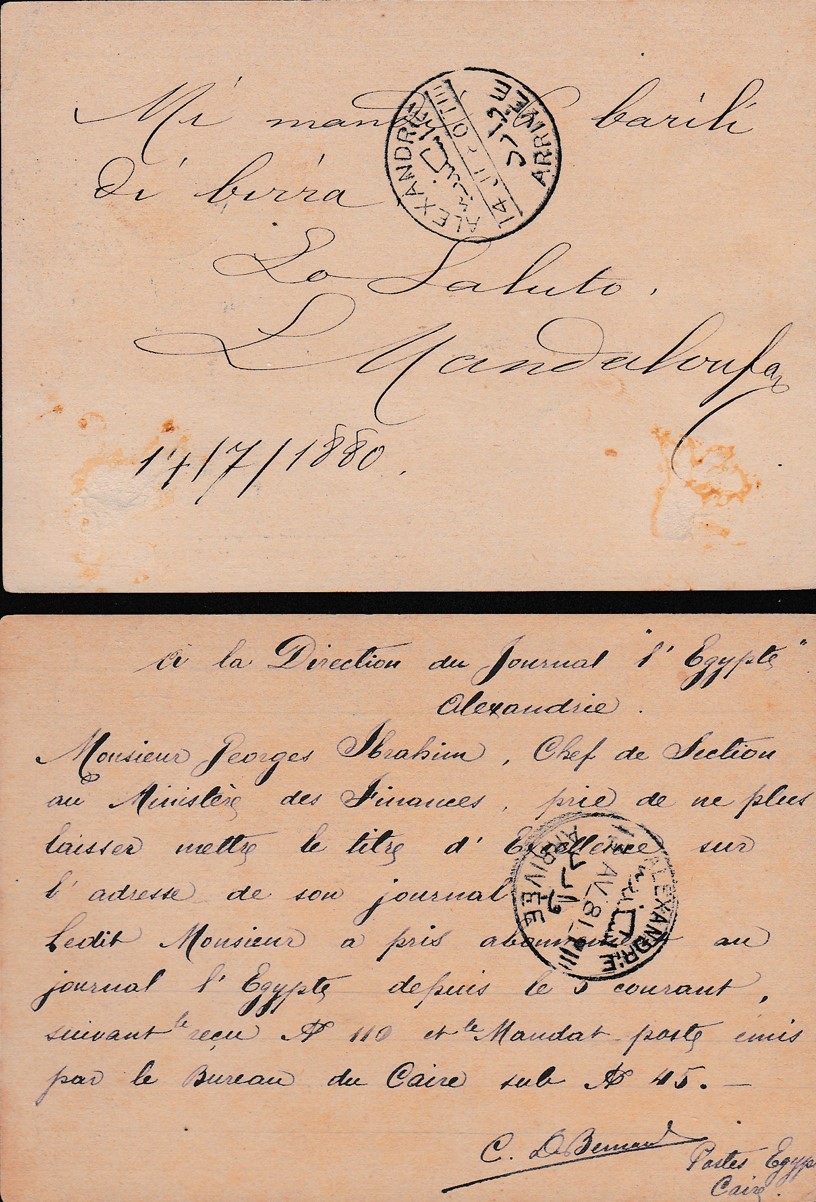 Mi mandi barili
di birra
Lo Saluto.
L Mandaloufas
14/7/1880.
ALEXANDRIE
ARRIVÉE
à la Direction du Journal "l'Egypte"
Alexandrie.
Monsieur Georges Ibrahim, Chef de Section
au Ministère des Finances, prie de ne plus
laisser mettre le titre d'Excellence sur
l'adresse de son journal
Ledit Monsieur a pris abonnement au
journal l'Egypte depuis le 5 courant,
suivant le reçu No 110 et le Mandat poste émis
par le Bureau du Caire sub No 45. —
C. De Bernard
Postes Egyp
Caire
ALEXANDRIE
AV 81
ARRIVÉE